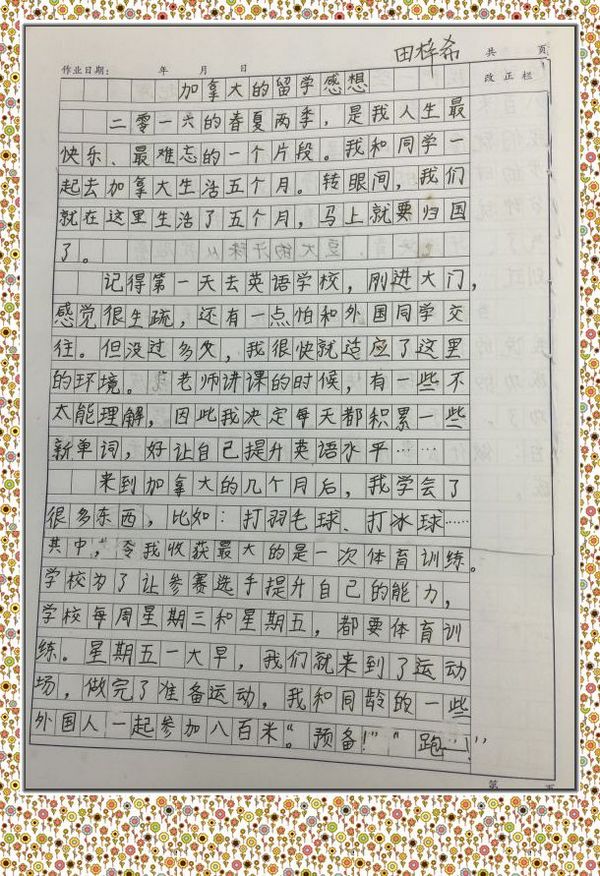 田梓希 共 页
作业日期： 年 月 日 改正栏
加拿大的留学感想
二零一六的春夏两季，是我人生最
快乐、最难忘的一个片段。我和同学一
起去加拿大生活五个月。转眼间，我们
就在这里生活了五个月，马上就要归国
了。
记得第一天去英语学校，刚进大门，
感觉很生疏，还有一点怕和外国同学交
往。但没过多久，我很快就适应了这里
的环境。老师讲课的时候，有一些不
太能理解，因此我决定每天都积累一些
新单词，好让自己提升英语水平……
来到加拿大的几个月后，我学会了
很多东西，比如：打羽毛球、打冰球……
其中，令我收获最大的是一次体育训练。
学校为了让参赛选手提升自己的能力，
学校每周星期三和星期五，都要体育训
练。星期五一大早，我们就来到了运动
场，做完了准备运动，我和同龄的一些
外国人一起参加八百米。“预备！”“跑…！”
第 页